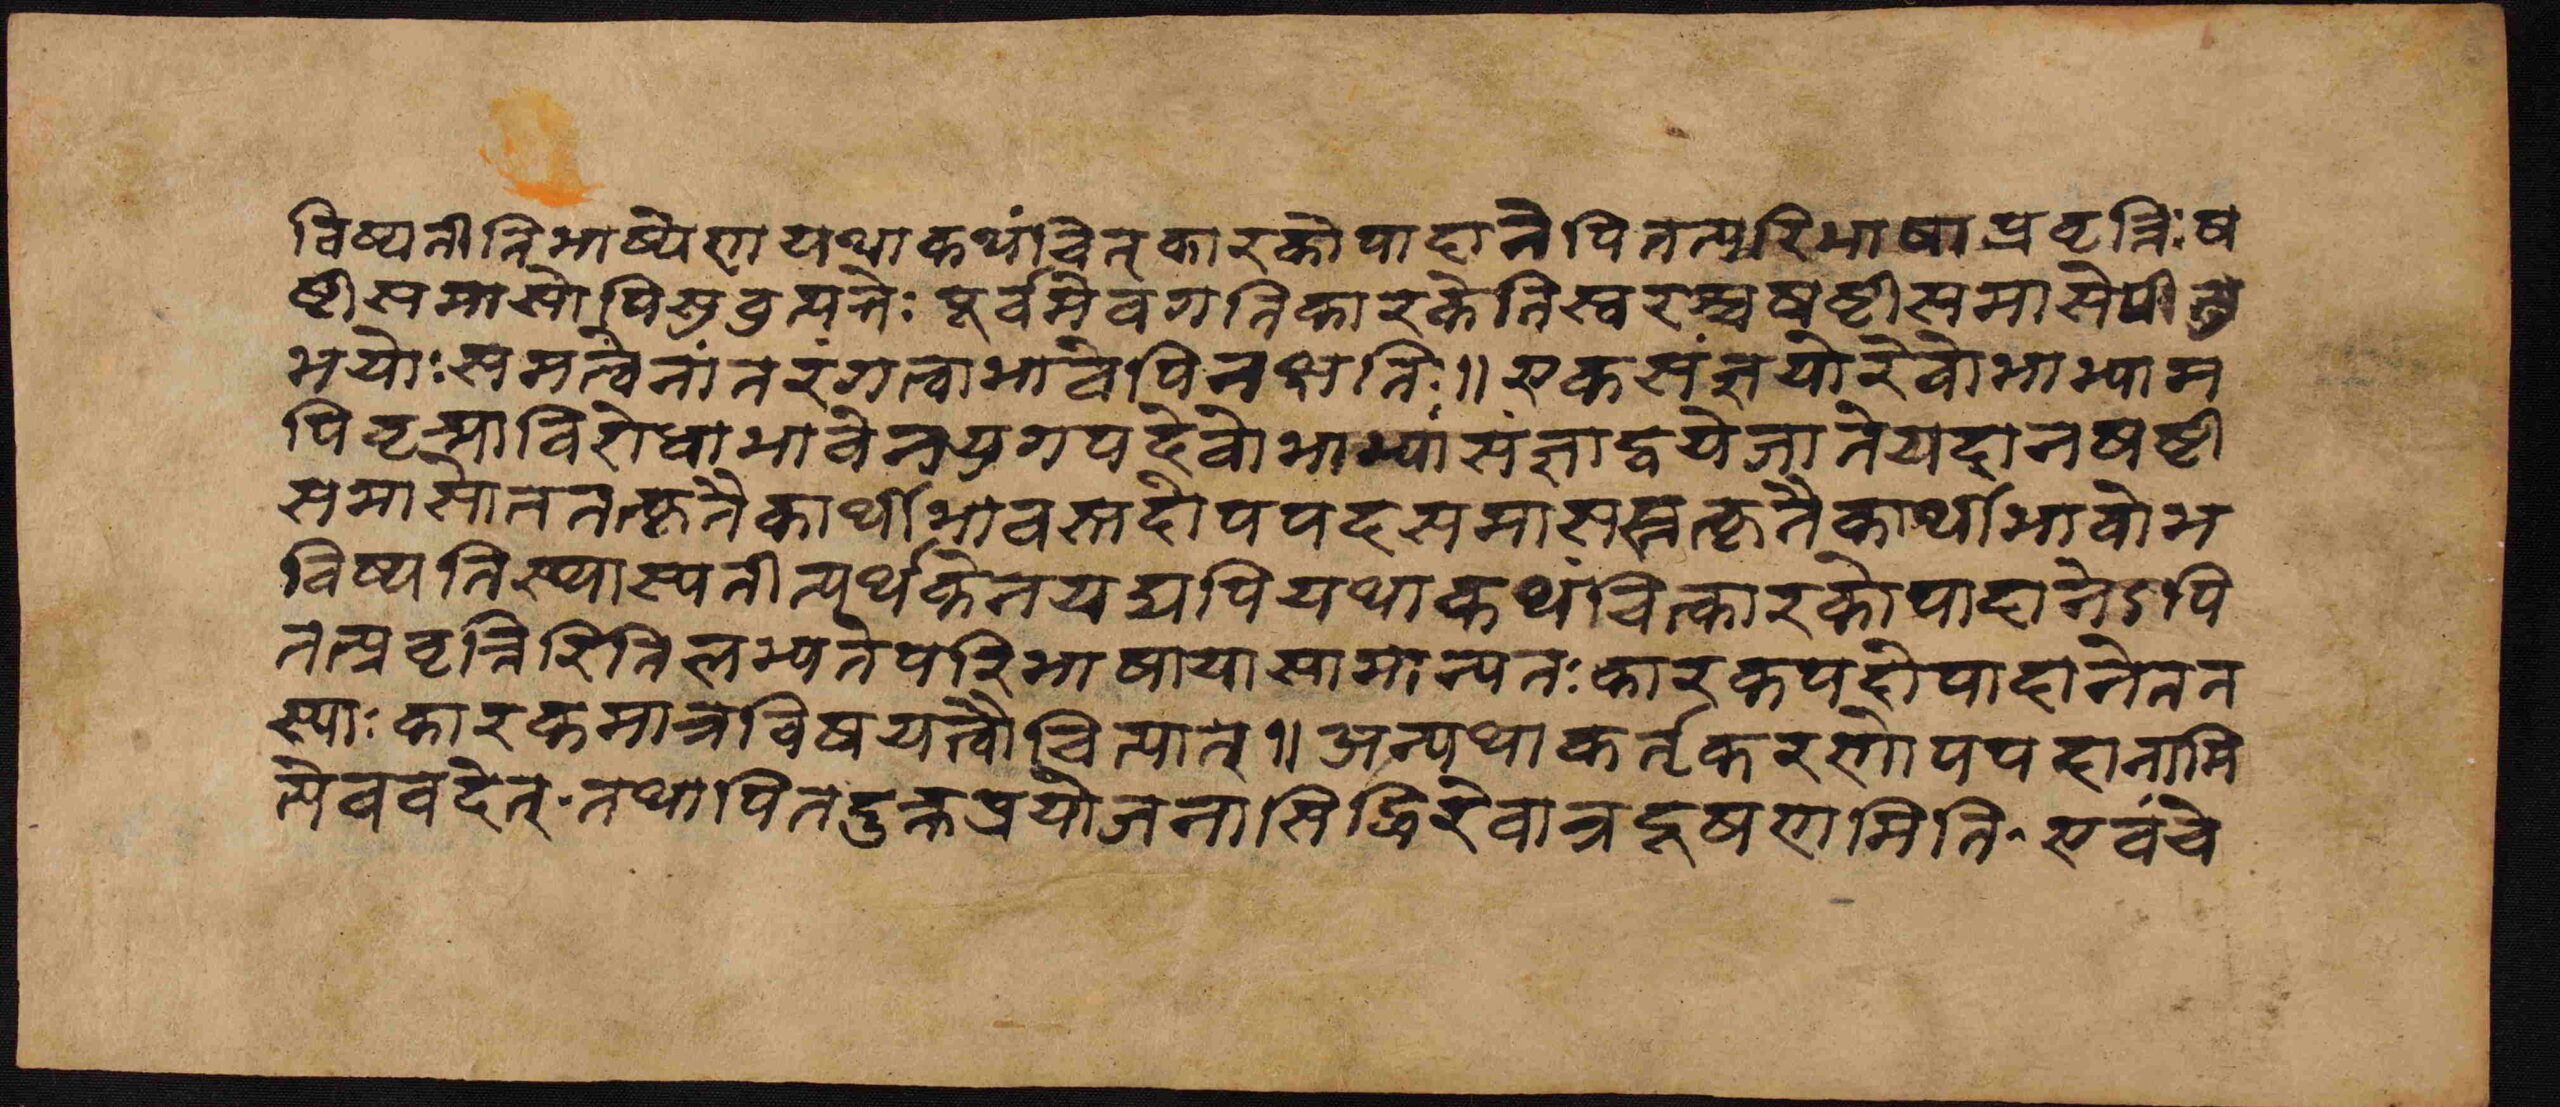 विष्यतीतिभाष्येणयथाकथंचित्कारकोपादानेपितत्परिभाषाप्रवृत्तिःष
ष्टीसमासोपिसुवुत्पत्तेःपूर्वमेवगतिकारकेतिस्वरश्चषष्टीसमासेपीतु
भयोःसमत्वेनांतरंगत्वाभावेपिनक्षतिः॥एकसंज्ञयोरेवोभाभ्याम
पिवृत्याविरोधाभावेनयुगपदेवोभाभ्यांसंज्ञाद्वयेजातेयदानषष्टी
समासोनतत्कृतैकार्थीभावस्तदोपपदसमासस्तत्कृतैकार्थीभावोभ
विष्यतिस्यास्यतीत्यर्थकेनयद्यपियथाकथंचित्कारकोपादानेऽपि
तत्प्रवृत्तिरितिलभ्यतेपरिभाषायासामान्यतःकारकपदोपादानेनत
स्याःकारकमात्रविषयत्वौचित्यात्॥अन्यथाकर्तृकरणोपपदानामि
त्येववदेत्-तथापितदुक्तप्रयोजनासिद्धिरेवात्रदूषणमिति-एवंचे